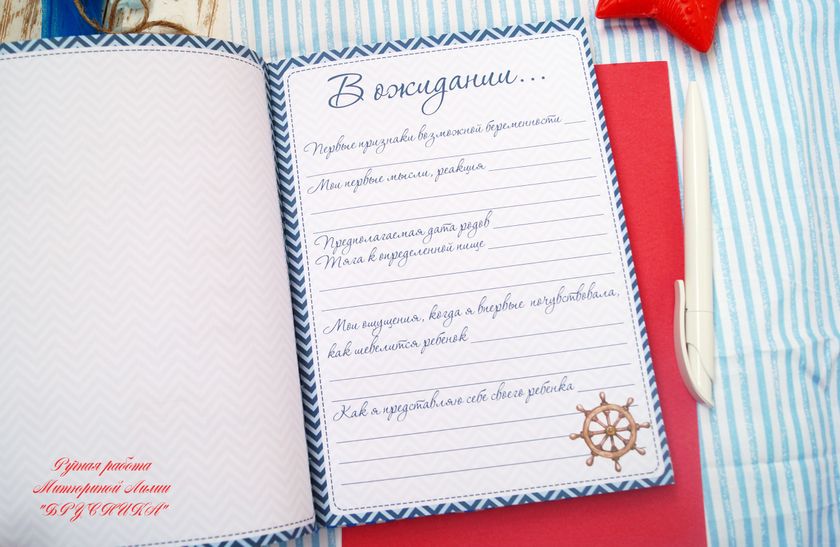 В ожидании...
Первые признаки возможной беременности
Мои первые мысли, реакция
Предполагаемая дата родов
Тяга к определенной пище
Мои ощущения, когда я впервые почувствовала,
как шевелится ребенок
Как я представляю себе своего ребенка
Ручная работа
Митяриной Лилии
"БРУСНИКА"